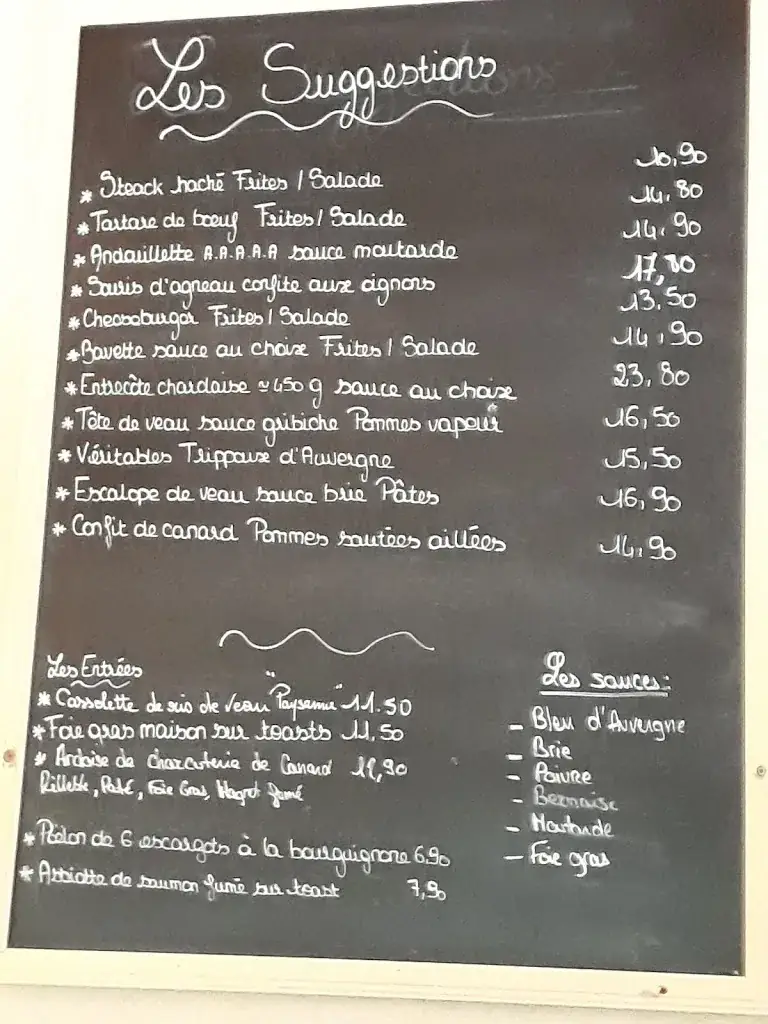 Les Suggestions
* Steack haché Frites / Salade 10,90
* Tartare de bœuf Frites / Salade 14,80
* Andouillette A.A.A.A.A sauce moutarde 14,90
* Souris d'agneau confite aux oignons 17,80
* Cheeseburger Frites / Salade 13,50
* Bavette sauce au choix Frites / Salade 14,90
* Entrecôte charolaise ≃ 450 g sauce au choix 23,80
* Tête de veau sauce gribiche Pommes vapeur 16,50
* Véritables Trippoux d'Auvergne 15,50
* Escalope de veau sauce brie Pâtes 16,90
* Confit de canard Pommes sautées aillées 14,90
Les Entrées
* Cassolette de ris de veau "Paysanne" 11.50
* Foie gras maison sur toasts 11,50
* Ardoise de charcuterie de Canard 11,90
Rillette, Paté, Foie Gras, Magret fumé
* Poêlon de 6 escargots à la bourguignone 6,90
* Assiette de saumon fumé sur toast 7,90
Les sauces:
- Bleu d'Auvergne
- Brie
- Poivre
- Bernaise
- Moutarde
- Foie gras